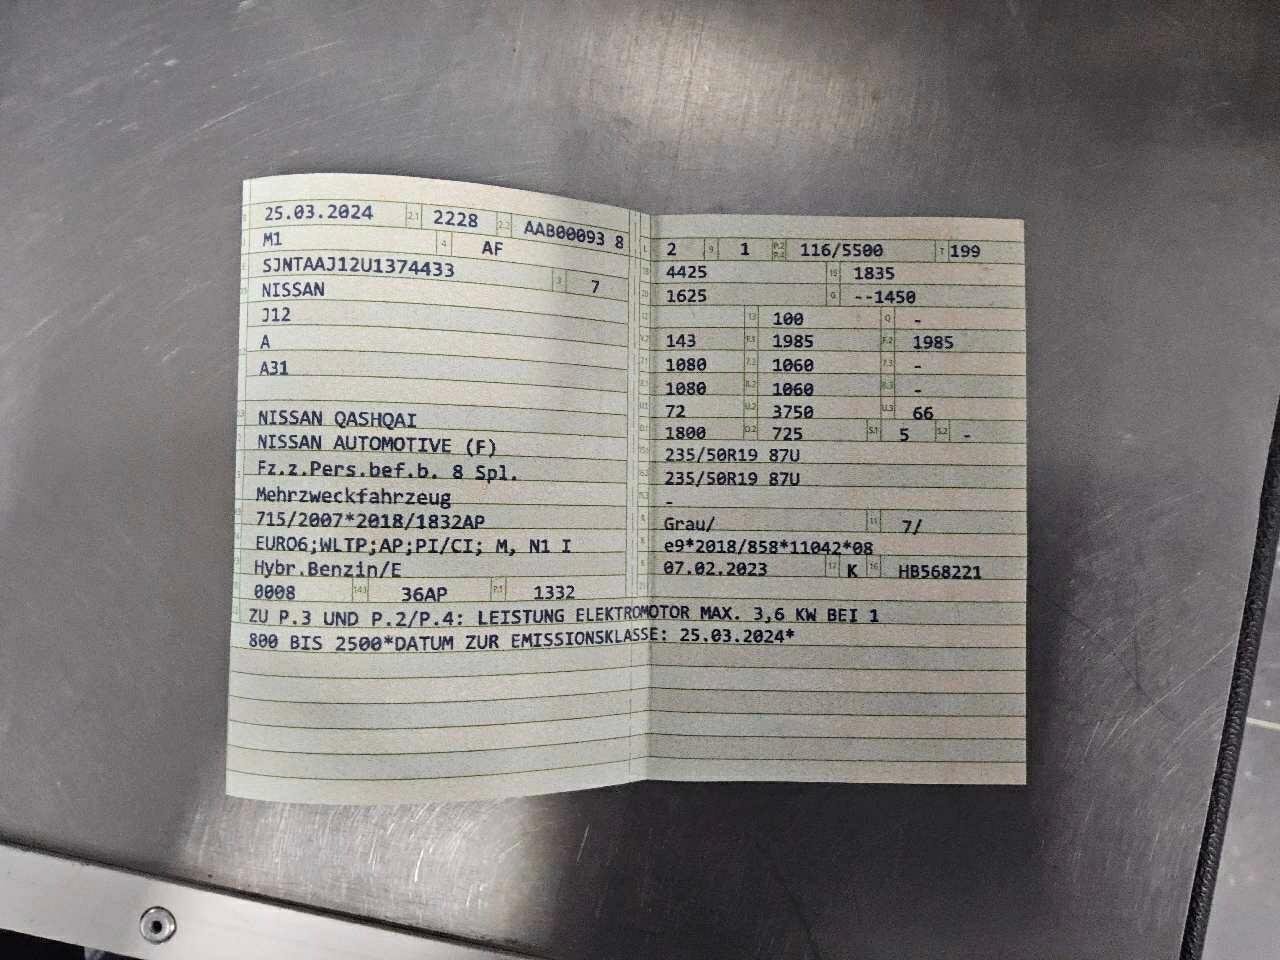 25.03.2024 2.1 2228 2.2 AAB00093 8
M1 4 AF
SJNTAAJ12U1374433 3 7
NISSAN
J12
A
A31
NISSAN QASHQAI
NISSAN AUTOMOTIVE (F)
Fz.z.Pers.bef.b. 8 Spl.
Mehrzweckfahrzeug
715/2007*2018/1832AP
EURO6;WLTP;AP;PI/CI; M, N1 I
Hybr.Benzin/E
0008 14.1 36AP P.1 1332
L 2 9 1 P.2 P.4 116/5500 T 199
18 4425 19 1835
20 1625 G --1450
12 13 100 Q -
V.7 143 F.1 1985 F.2 1985
7.1 1080 7.2 1060 7.3 -
8.1 1080 8.2 1060 8.3 -
U.1 72 U.2 3750 U.3 66
O.1 1800 O.2 725 S.1 5 S.2 -
15.1 235/50R19 87U
15.2 235/50R19 87U
15.3 -
R Grau/ 11 7/
K e9*2018/858*11042*08
6 07.02.2023 17 K 16 HB568221
21
22 ZU P.3 UND P.2/P.4: LEISTUNG ELEKTROMOTOR MAX. 3,6 KW BEI 1
800 BIS 2500*DATUM ZUR EMISSIONSKLASSE: 25.03.2024*